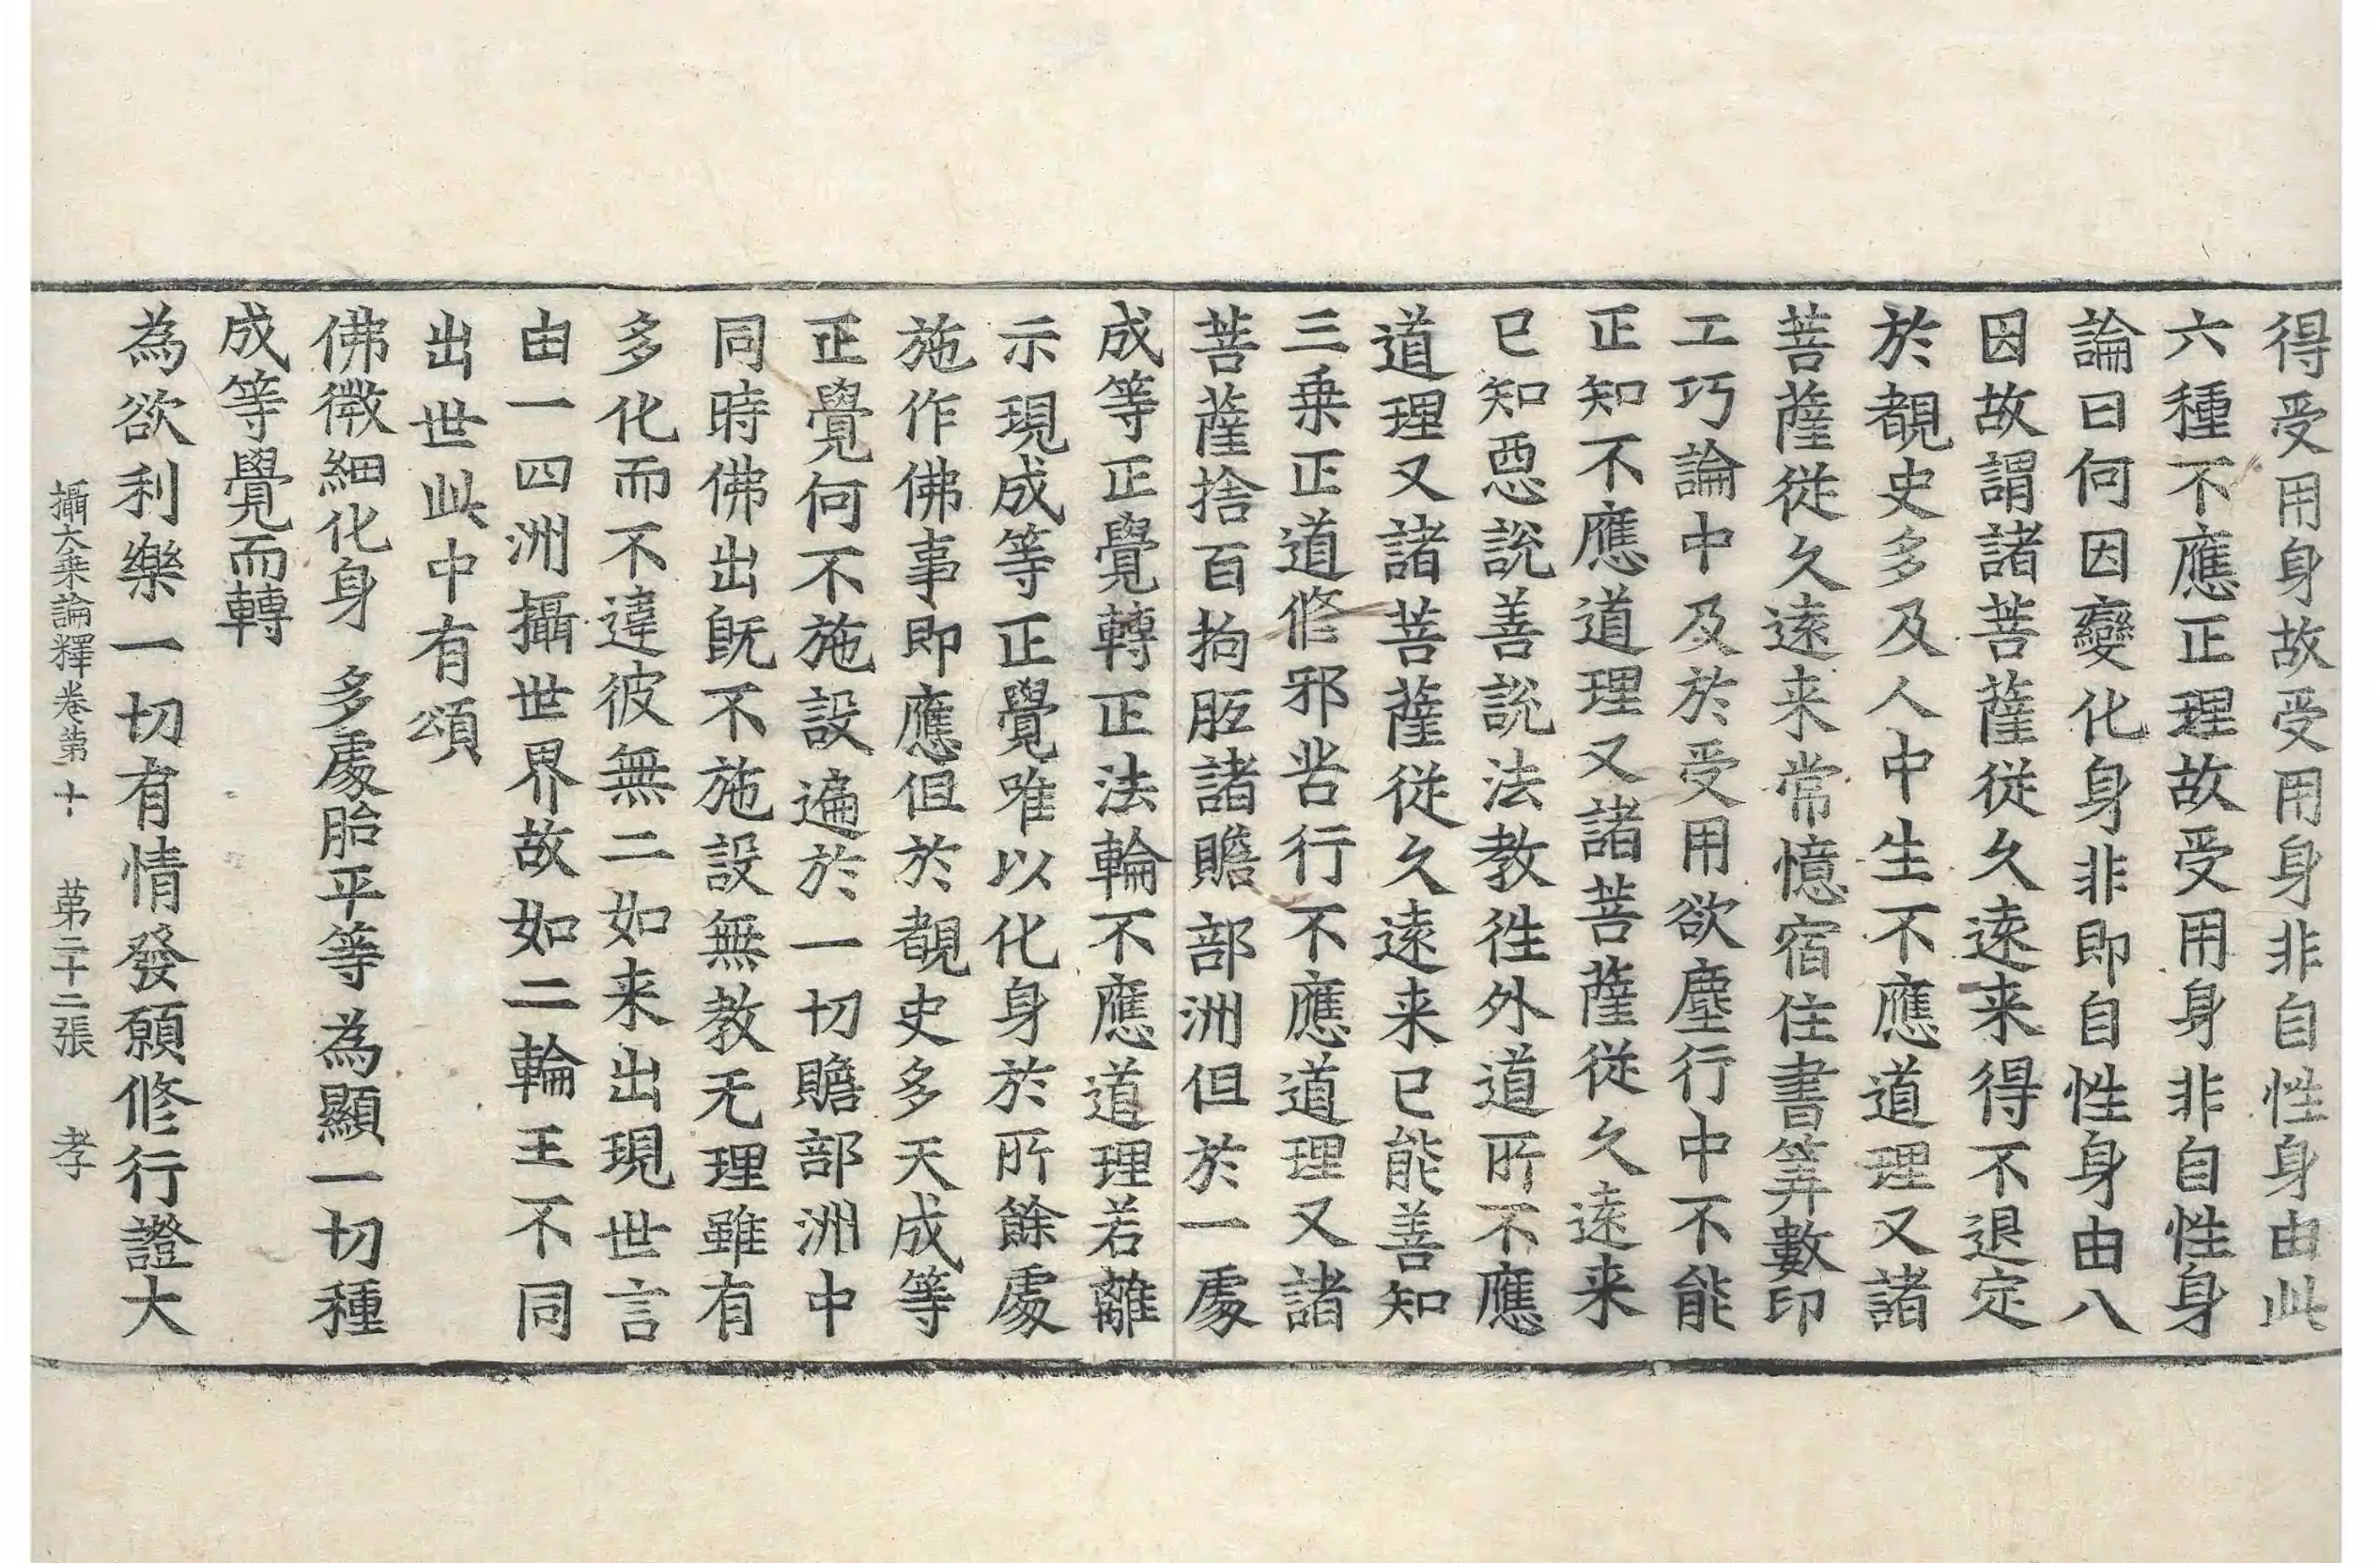 得受用身故受用身非自性身由此
六種不應正理故受用身非自性身
論曰何因變化身非即自性身由八
因故謂諸菩薩從久遠来得不退定
於覩史多及人中生不應道理又諸
菩薩從久遠来常憶宿住書筭數印
工巧論中及於受用欲塵行中不能
正知不應道理又諸菩薩從久遠来
已知惡說善說法教徃外道所不應
道理又諸菩薩從久遠来已能善知
三乗正道修邪苦行不應道理又諸
菩薩捨百拘胝諸贍部洲但於一處
成等正覺轉正法輪不應道理若離
示現成等正覺唯以化身於所餘處
施作佛事即應但於覩史多天成等
正覺何不施設遍於一切贍部洲中
同時佛出旣不施設無教无理雖有
多化而不違彼無二如来出現世言
由一四洲攝世界故如二輪王不同
出世此中有頌
佛微細化身 多處胎平等 為顯一切種
成等覺而轉
為欲利樂一切有情發願修行證大
攝大乗論釋卷第十 第二十二張 孝